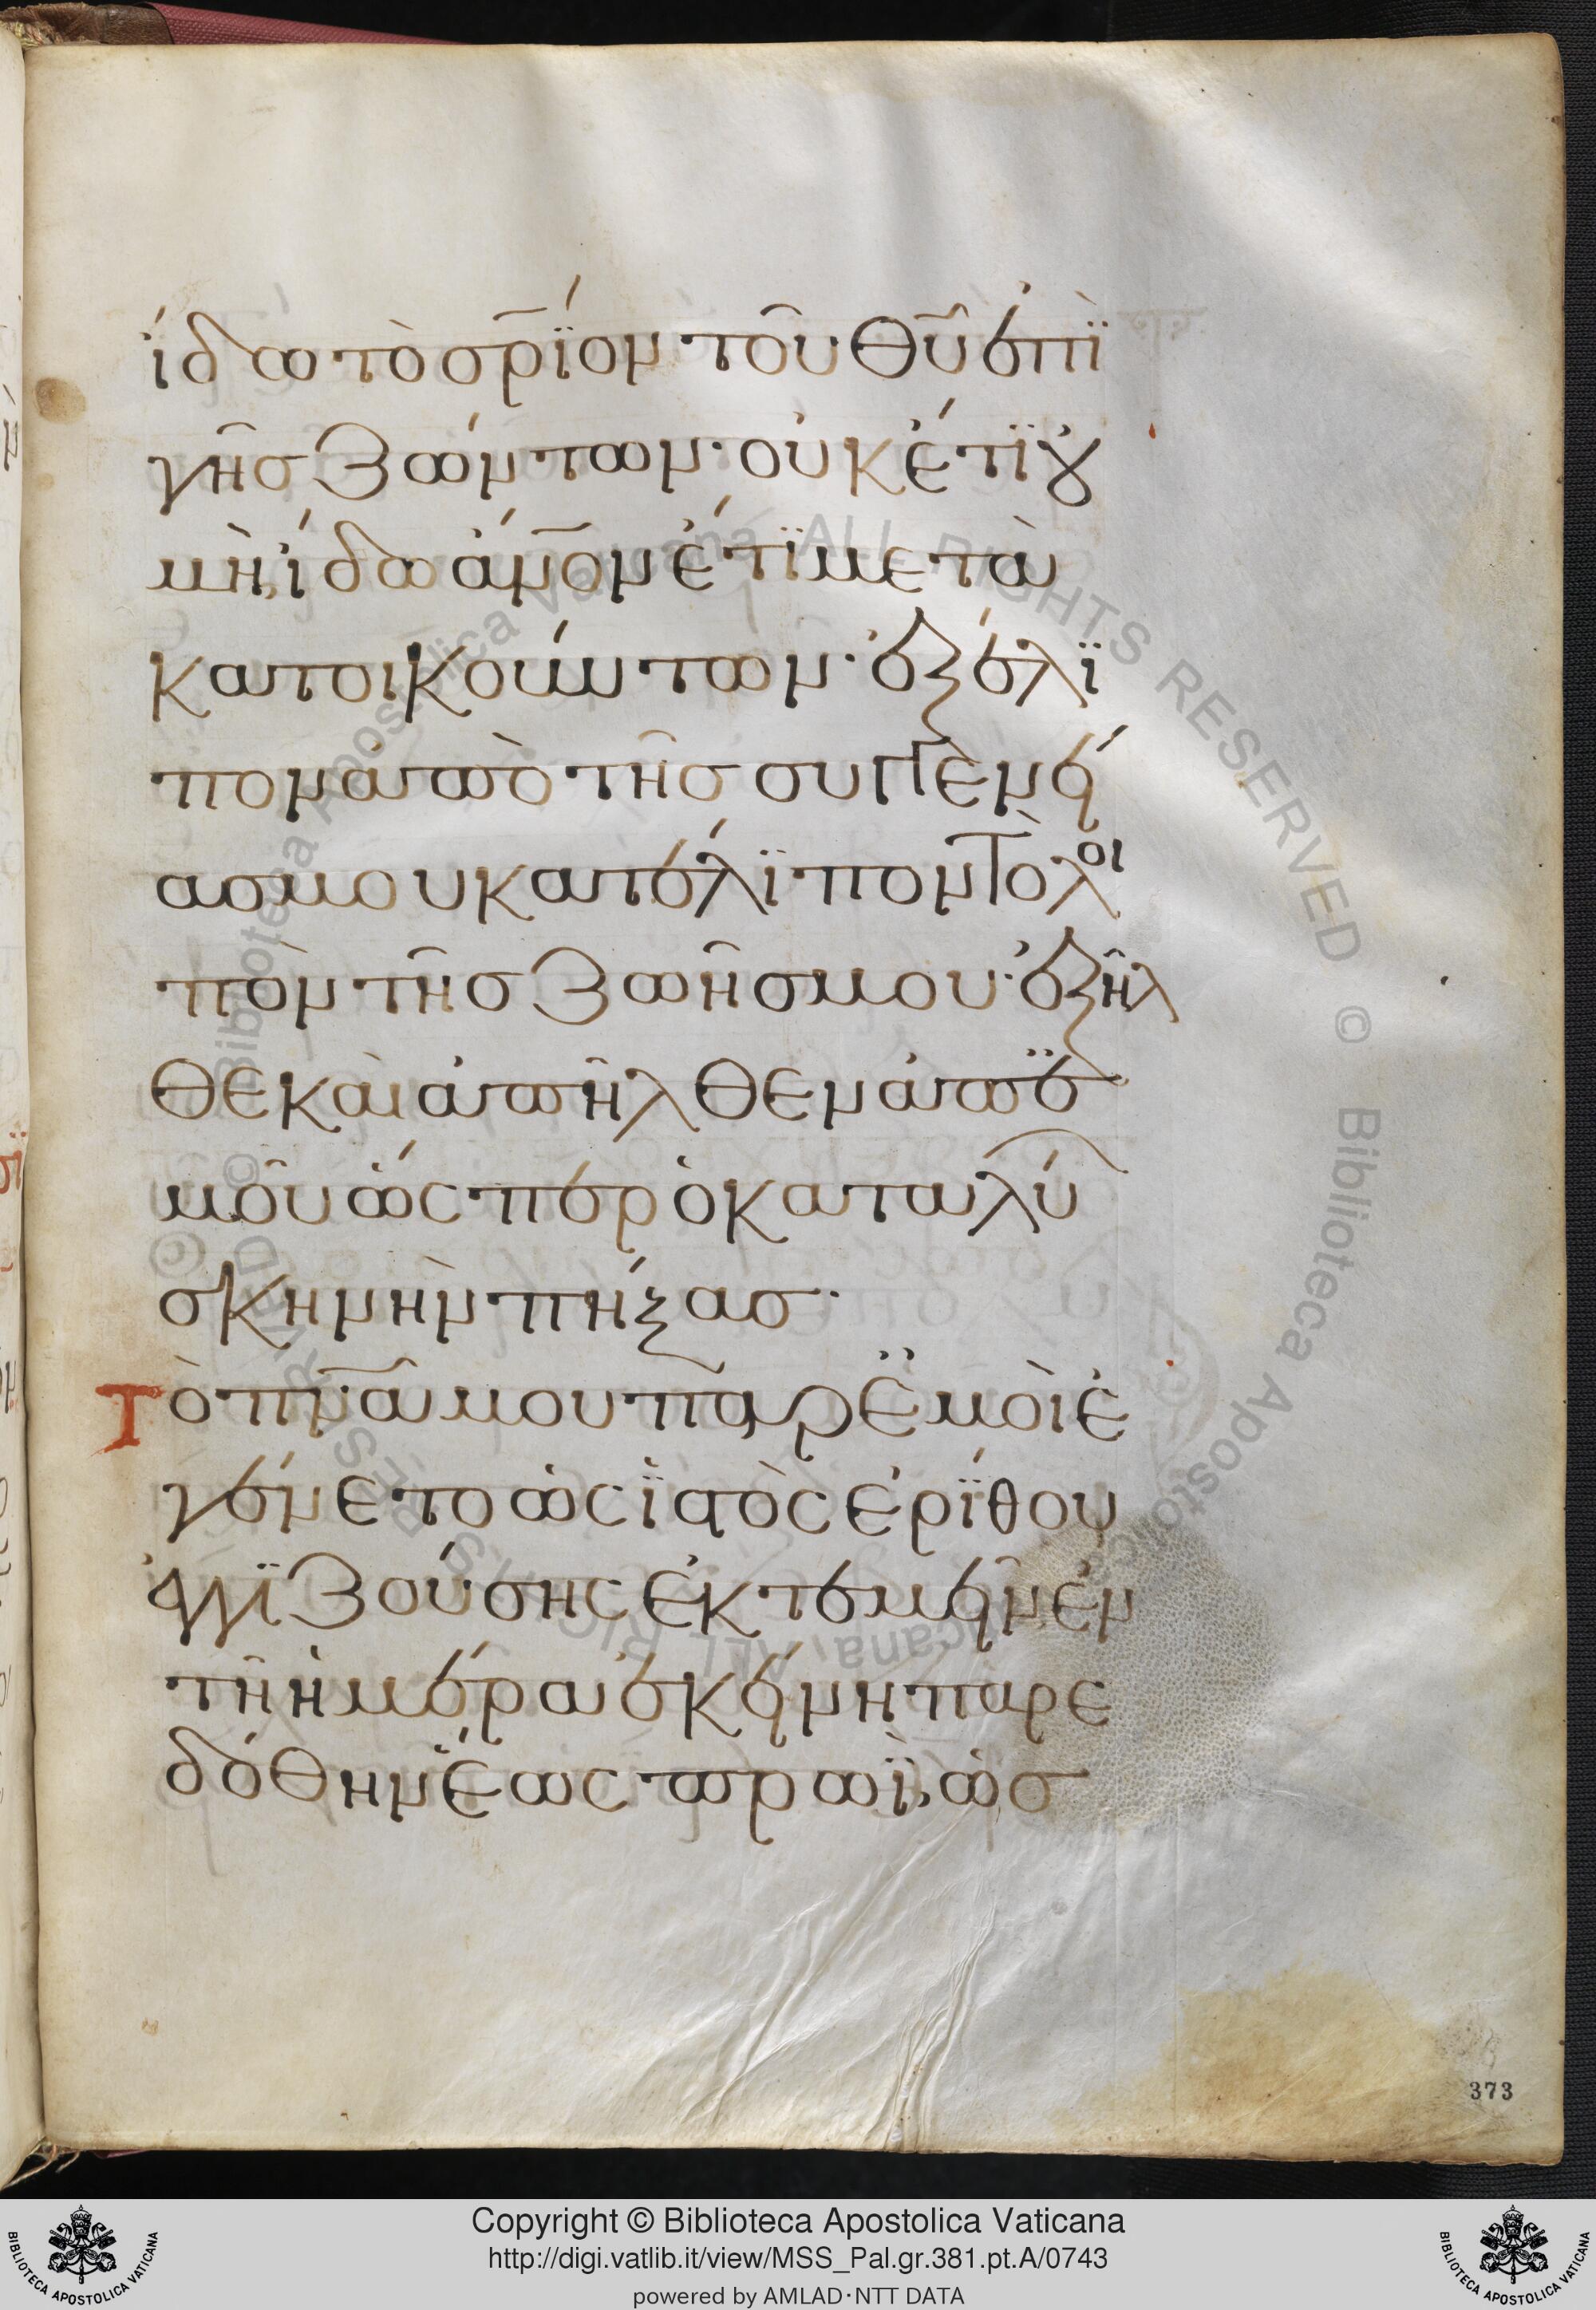 ἴδω τὸ σρ̅ϊον τοῦ θυ̅ ἐπῒ
γῆς ζώντων· οὐκέτϊ ȣ̓
μὴ ἴδω ἄν̅ον ἔτϊ μετὰ
κατοικούντων· ἐξέλϊ
πον ἀπὸ τῆς συγγενεί
ας μου κατέλϊπον τὸ λοι
πὸν τῆς ζωῆς μου· ἐξῆλ
θε καὶ ἀπῆλθεν ἀπ' ἐ
μοῦ ὥσπερ ὁ καταλύ
σκηνὴν πήξας·
Τὸ πν̅ᾱ μου παρ' ἐμοὶ ἐ
γένετο ὡς ϊστὸς ἐρΐθου
ἐγγϊζούσης ἐκτεμεῖν ἐν
τῆ ἡμέρα ἐκείνη παρε
δόθην ἕως πρωῒ, ὡς
373
Copyright © Biblioteca Apostolica Vaticana
http://digi.vatlib.it/view/MSS_Pal.gr.381.pt.A/0743
powered by AMLAD·NTT DATA
BIBLIOTECA APOSTOLICA VATICANA
BIBLIOTECA APOSTOLICA VATICANA
© Biblioteca Apostolica Vaticana ALL RIGHTS RESERVED
© Biblioteca Apostolica Vaticana ALL RIGHTS RESERVED